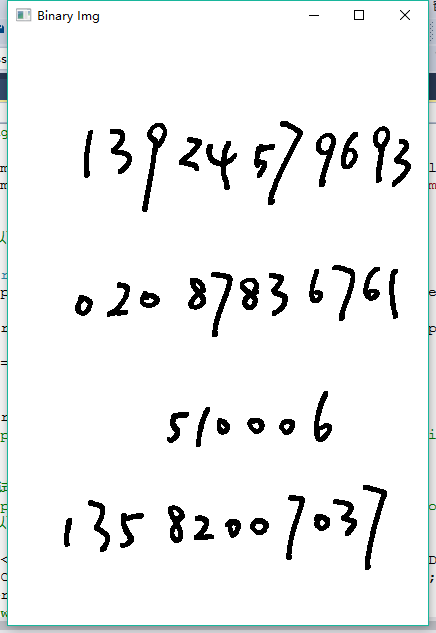 Binary Img
13924579693
02087836761
510006
13582007037